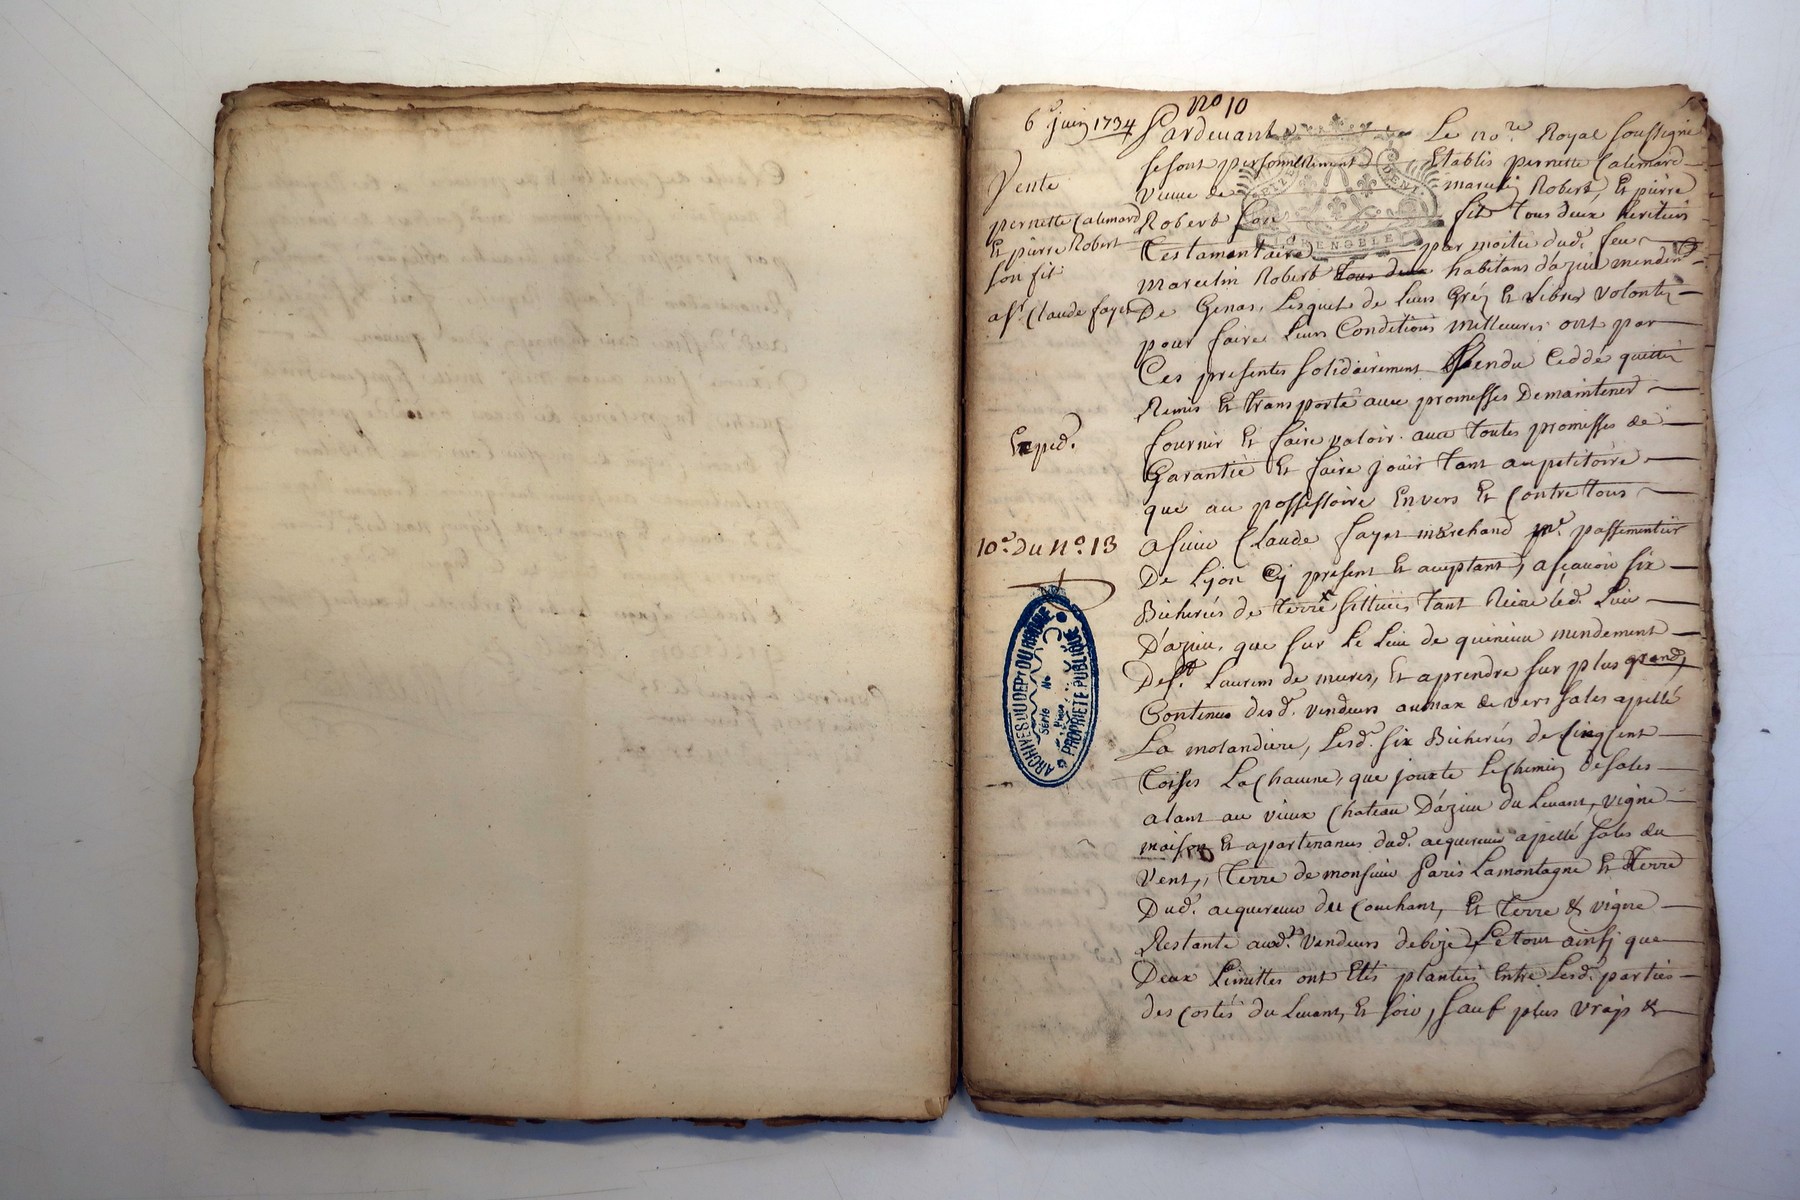 no 10
6e Juin 1734
Pardevant Le nore Royal soussigné
se sont personnellement Etablis pernette Calemard
veuve de marcelin Robert, Et pierre
Robert son fils tous deux heritiers
testamentaire par moitié dud. feu
marcelin Robert tous deux habitans d'azieu mendemt
De Genas, Lesquels de Leurs Gréz Et Libres volontez
pour faire Leurs Conditions meilleures ont par
Ces presentes solidairement Vendu Ceddé quitté
Remis Et transporté avec promesses De maintenir
fournir Et faire valoir avec toutes promesses de
Garantie Et faire jouir tant au petitoire
que au possessoire Envers Et Contre tous
a sieur Claude fayet marchand me. passementier
De Lyon Cy present Et acceptant, a sçavoir six
Bicherées de terre scituées tant Riere led. Lieu
D'azieu, que sur Le Lieu de quincieu mendement
De st. Laurens de mures, Et a prendre sur plus grand,
Contenu desd. vendeurs au max de vers sales apellé
La molandiere, Lesd. six Bicherées de Cinq Cent
Toises La Chacune, que jouxte Le Chemin de sales
alant au vieux Chateau D'azieu du Levant, vigne
maison Et apartenances dud. acquereur apellé sales du
Vent, Terre de monsieur Paris Lamontagne Et Terre
Dud. acquereur du Couchant, Et Terre & vigne
Restante auxd. Vendeurs de bize, Le tout ainsi que
Deux Limittes ont Etés plantées Entre Lesd. parties
des Costés du Levant, Et soir, sauf plus vrais &
Vente
pernette Calemard
Et pierre Robert
son fils
a sr. Claude fayet
Exped.
10e. Du No. 13
ARCHIVES DU DEPT DU RHONE
SERIE No
PROPRIETE PUBLIQUE